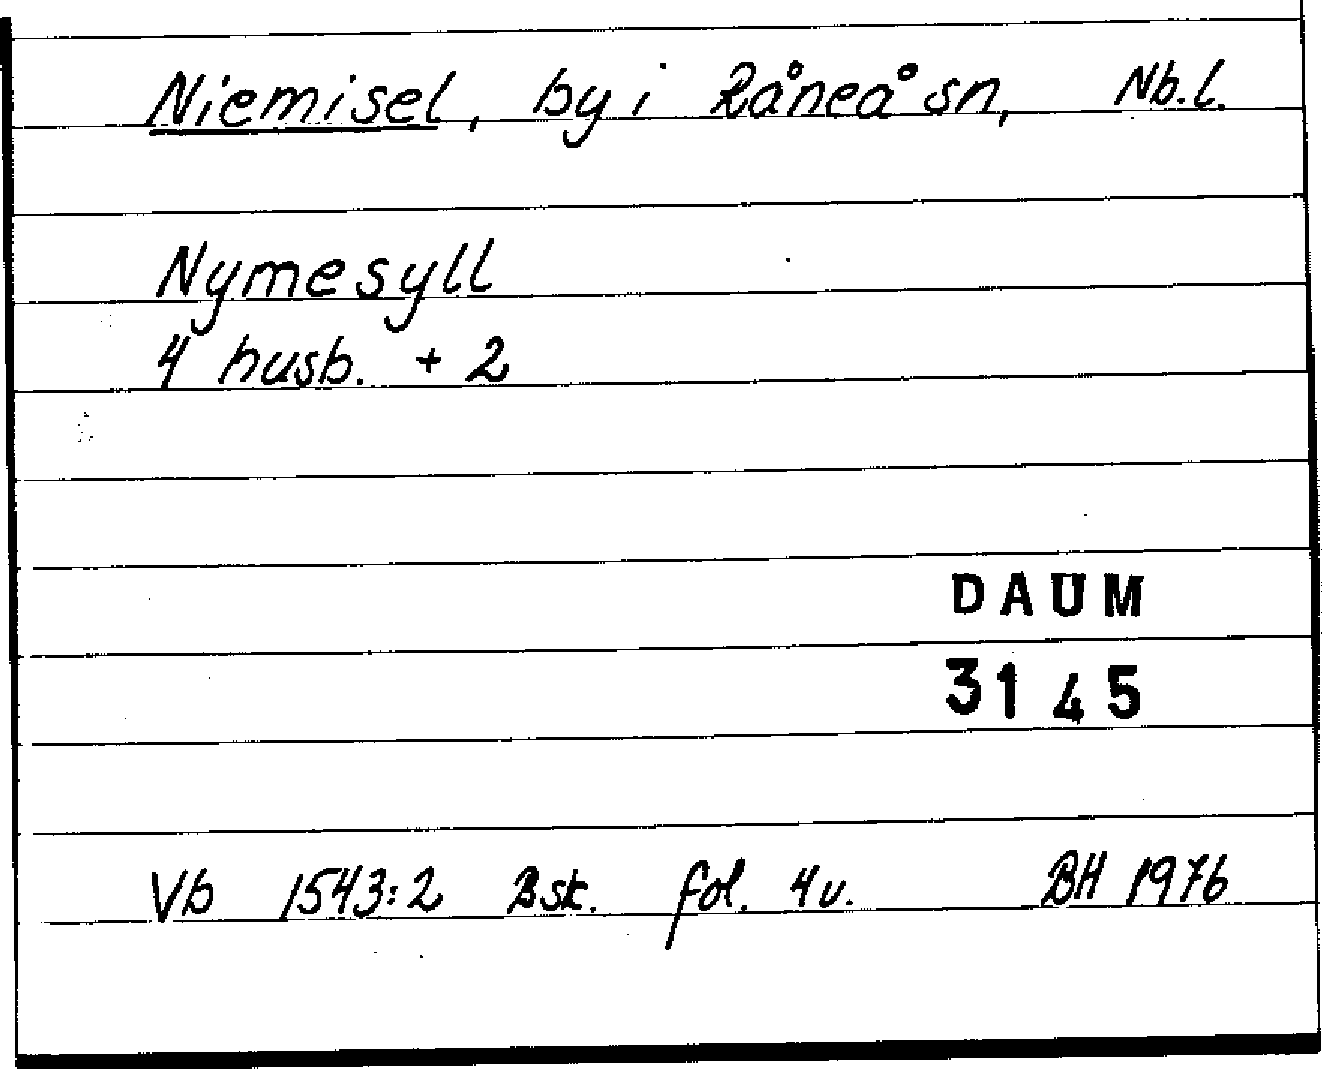 Niemisel, by i Råneå sn, Nb.l.
Nymesyll
4 husb. + 2
DAUM
3145
Vb 1543:2 Bsk. fol. 4v. BH 1976